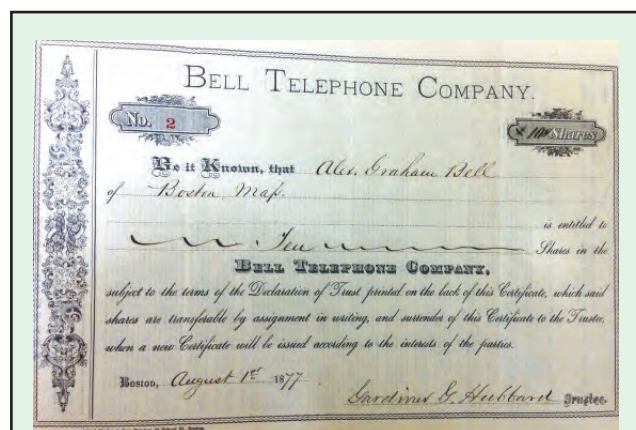 BELL TELEPHONE COMPANY.
No. 2
Shares
Be it Known, that Alex. Graham Bell
of Boston Mass.
is entitled to
Ten Shares in the
BELL TELEPHONE COMPANY,
subject to the terms of the Declaration of Trust printed on the back of this Certificate, which said
shares are transferable by assignment in writing, and surrender of this Certificate to the Trustee,
when a new Certificate will be issued according to the interests of the parties.
Boston, August 1st 1877.
Gardiner G. Hubbard Trustee.